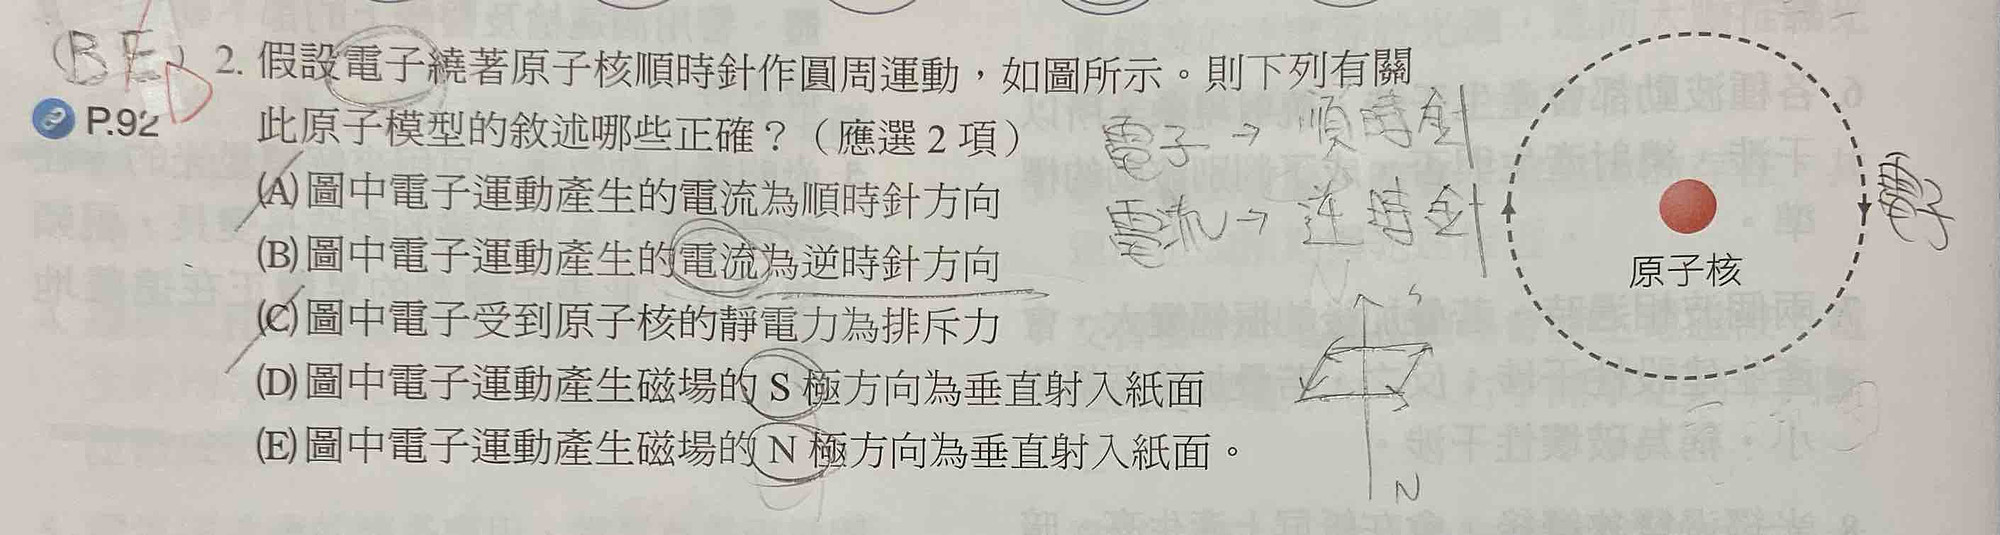 (BE) D
2. 假設電子繞著原子核順時針作圓周運動，如圖所示。則下列有關
P.92
此原子模型的敘述哪些正確？（應選 2 項）
(A)圖中電子運動產生的電流為順時針方向
(B)圖中電子運動產生的電流為逆時針方向
(C)圖中電子受到原子核的靜電力為排斥力
(D)圖中電子運動產生磁場的 S 極方向為垂直射入紙面
(E)圖中電子運動產生磁場的 N 極方向為垂直射入紙面。
電子→順時針
電流→逆時針
S
N
原子核
電子